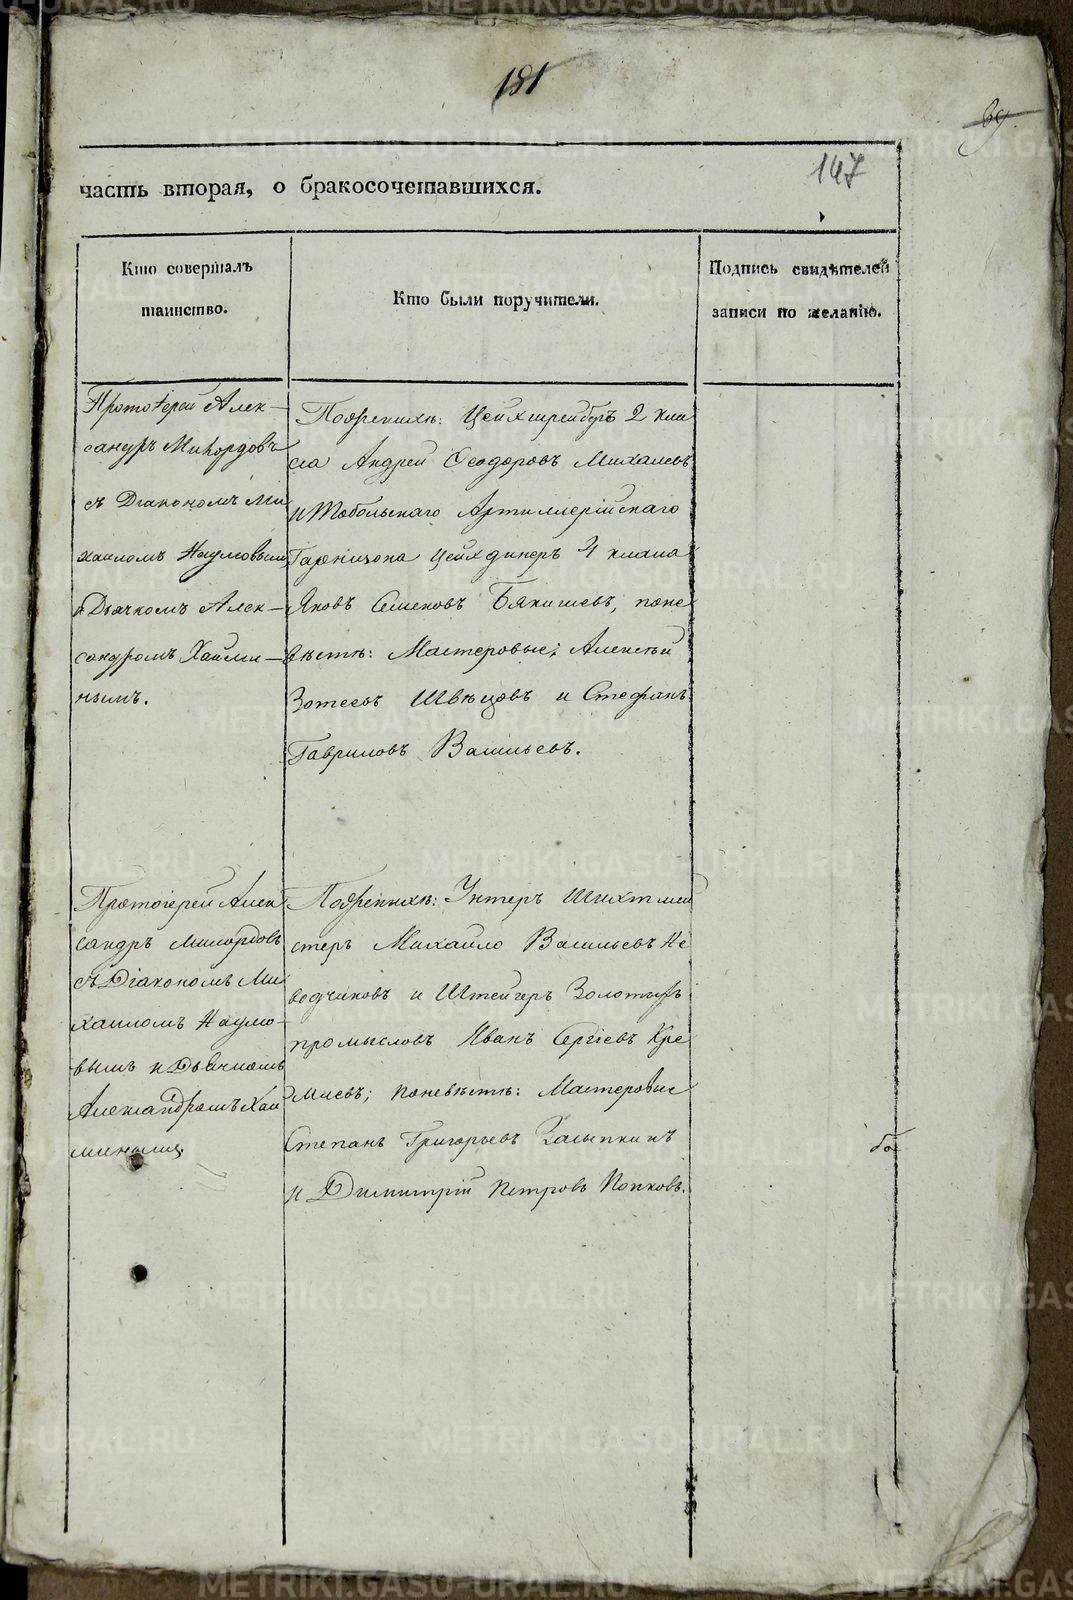 181
69
147
часть вторая, о бракосочетавшихся.
Кто совершалъ
таинство.
Кто были поручители.
Подпись свидѣтелей
записи по желанію.
Протоіерей Алек-
сандръ Милордовъ
съ Діакономъ Ми
хаиломъ Наумовымъ
и Дьячкомъ Алек-
сандромъ Хайми-
нымъ.
По женихѣ: Цейхшрейберъ 2 кла
са Андрей Ѳеодоровъ Михалевъ
и Тобольскаго Артиллерійскаго
Гарнизона Цейхдинеръ 4 класа
Яковъ Семеновъ Бякишевъ, поне
вѣстѣ: Мастеровые; Алексѣй
Зотеевъ Швѣцовъ и Стефанъ
Гавриловъ Васильевъ.
Протоіерей Алек
сандръ Милордовъ
съ Діакономъ Ми
хаиломъ Наумо-
вымъ и Дьячкомъ
Александромъ Хай
минымъ
По женихѣ: Унтеръ Шихтмей
стеръ Михайло Васильевъ Не
водчиковъ и Штейгеръ Золотыхъ
промысловъ Иванъ Сергіевъ Кре
млевъ; поневѣстѣ: Мастеровые
Степанъ Григорьевъ Засыпкинъ
и Димитрій Петровъ Попковъ.
METRIKI.GASO-URAL.RU